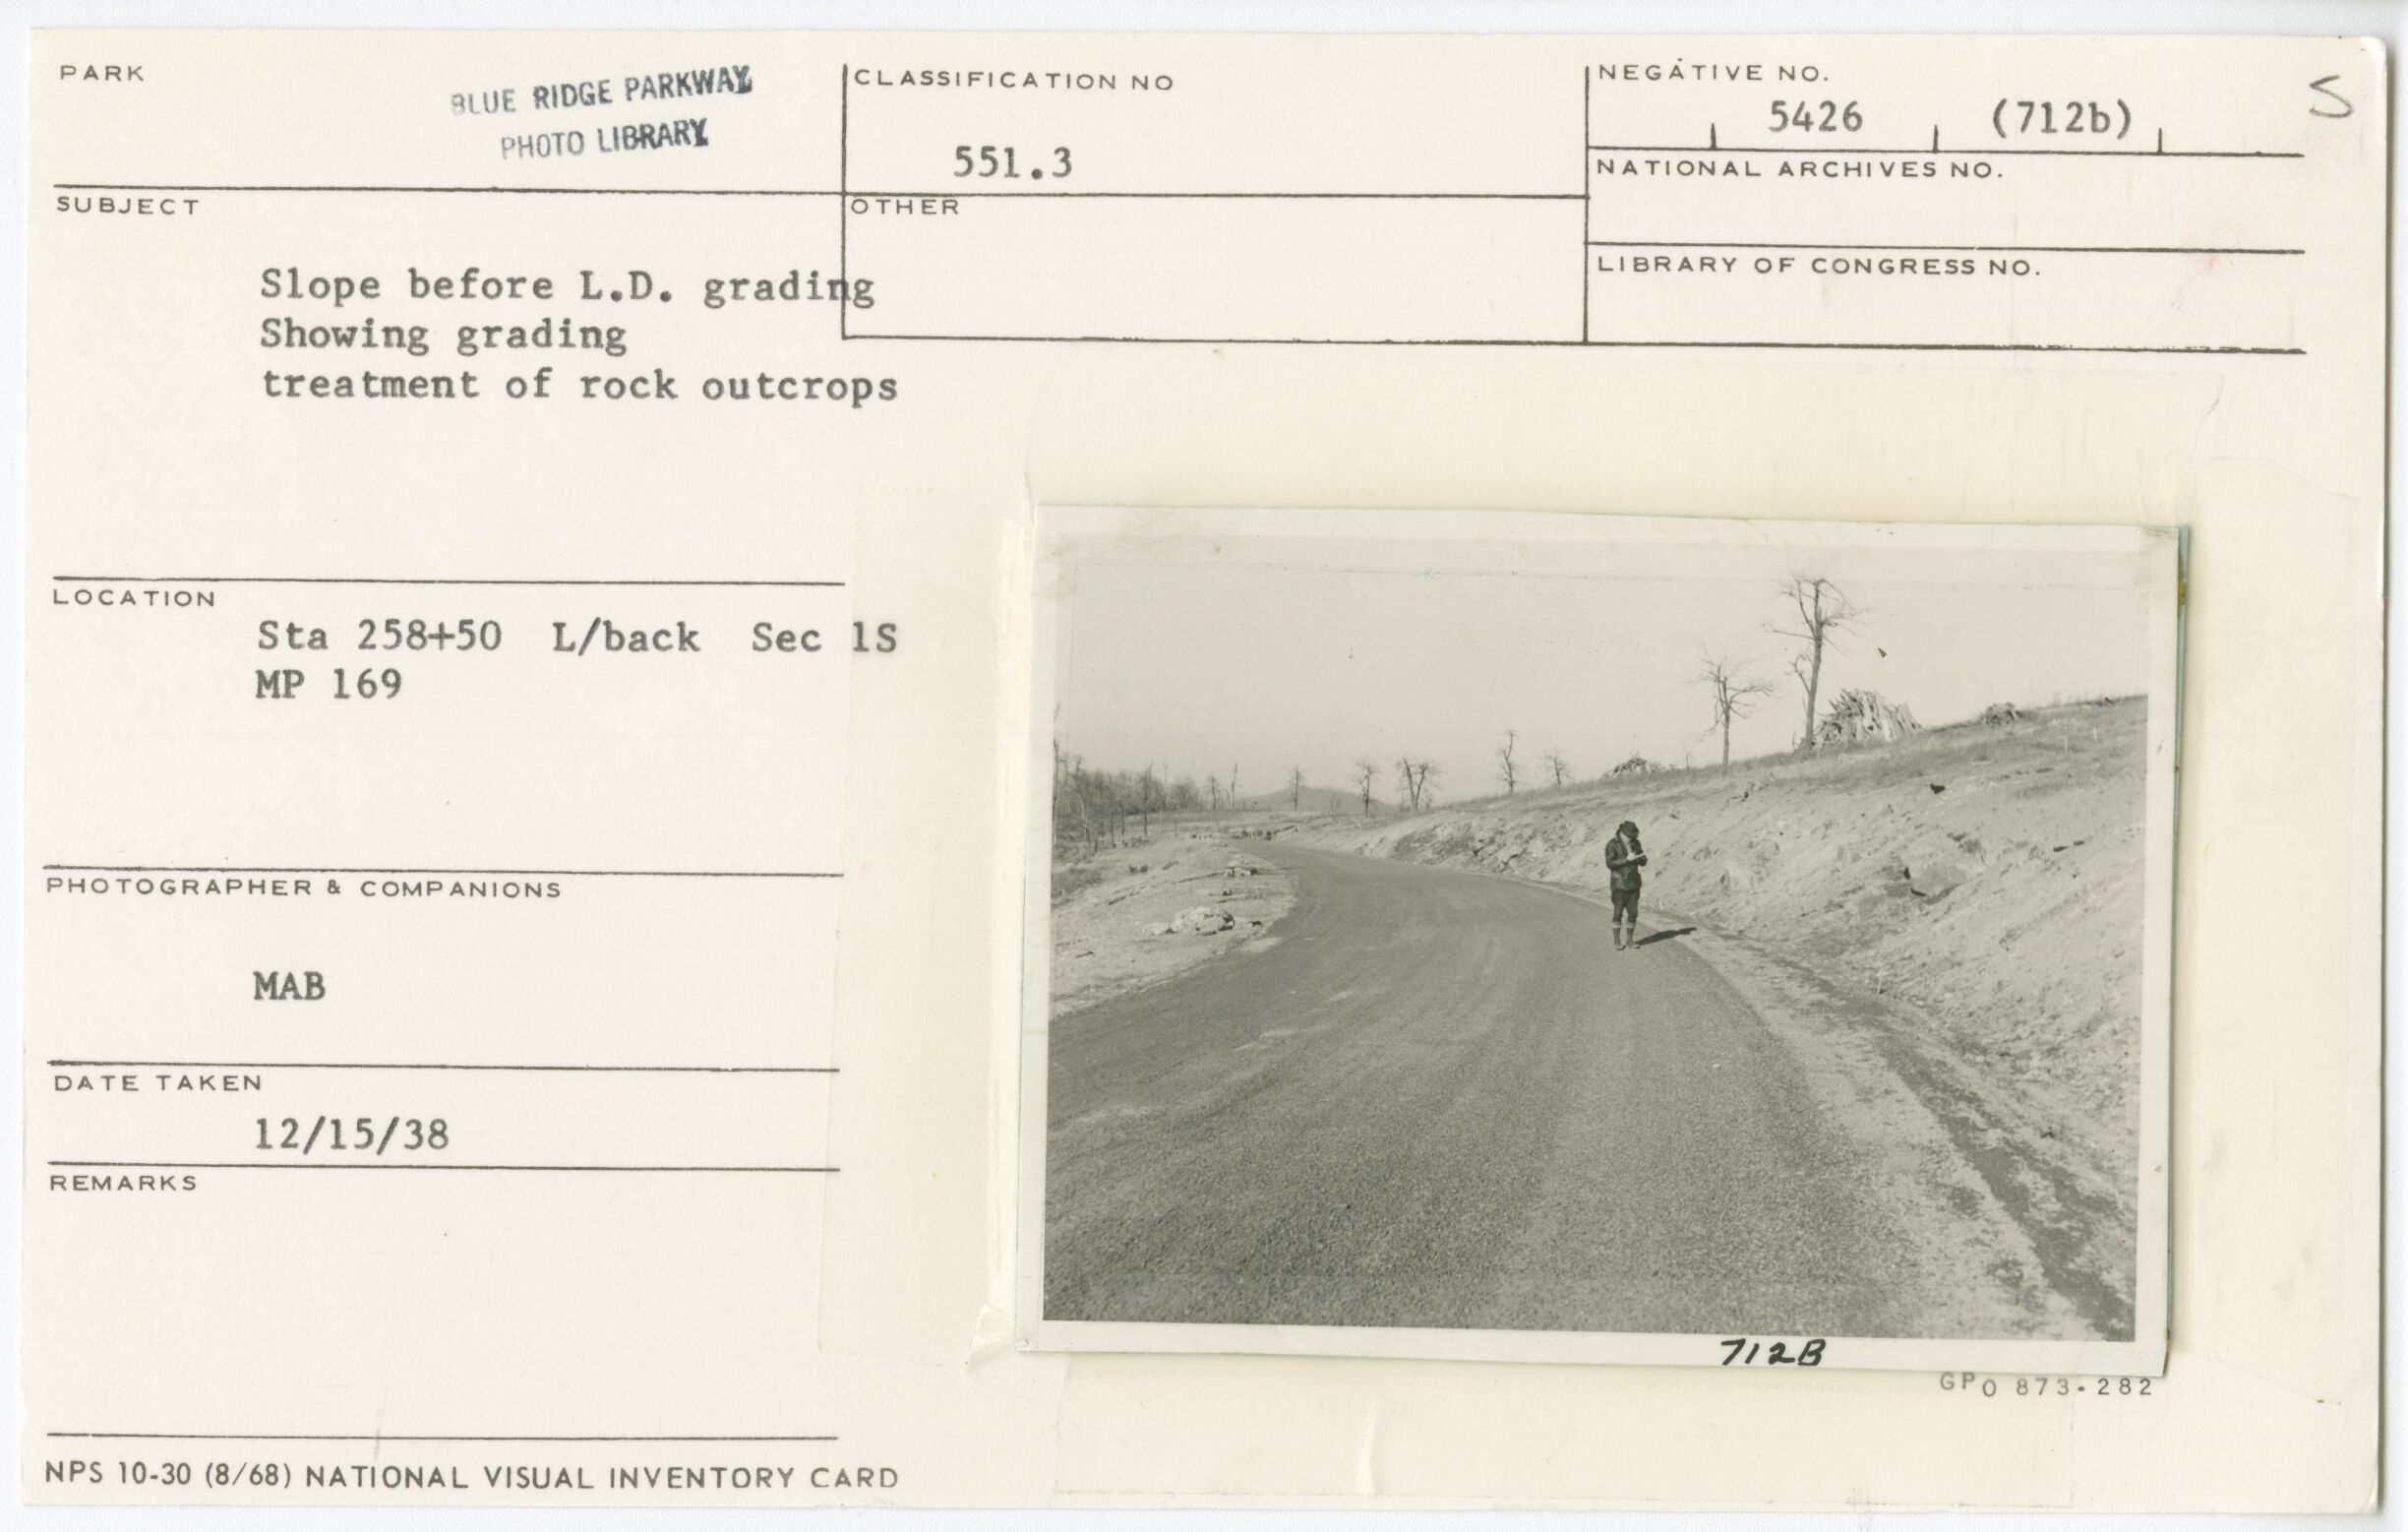 PARK
BLUE RIDGE PARKWAY
PHOTO LIBRARY
CLASSIFICATION NO
551.3
NEGATIVE NO.
5426 (712b)
S
NATIONAL ARCHIVES NO.
SUBJECT
OTHER
LIBRARY OF CONGRESS NO.
Slope before L.D. grading
Showing grading
treatment of rock outcrops
LOCATION
Sta 258+50 L/back Sec 1S
MP 169
PHOTOGRAPHER & COMPANIONS
MAB
DATE TAKEN
12/15/38
REMARKS
712B
GPO 873-282
NPS 10-30 (8/68) NATIONAL VISUAL INVENTORY CARD